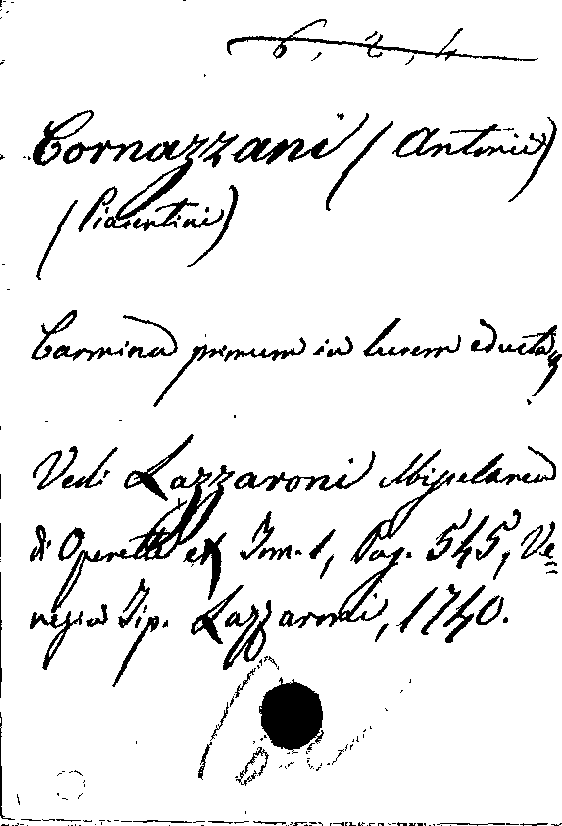 6, 2, 4
Cornazzani (Antonii)
(Piacentini)
Carmina primum in lucem educta,
Vedi Lazzaroni Miscelanea
di Operette ec Tom. 1, Pag. 545, Ve=
negia Tip. Lazzaroni, 1740.